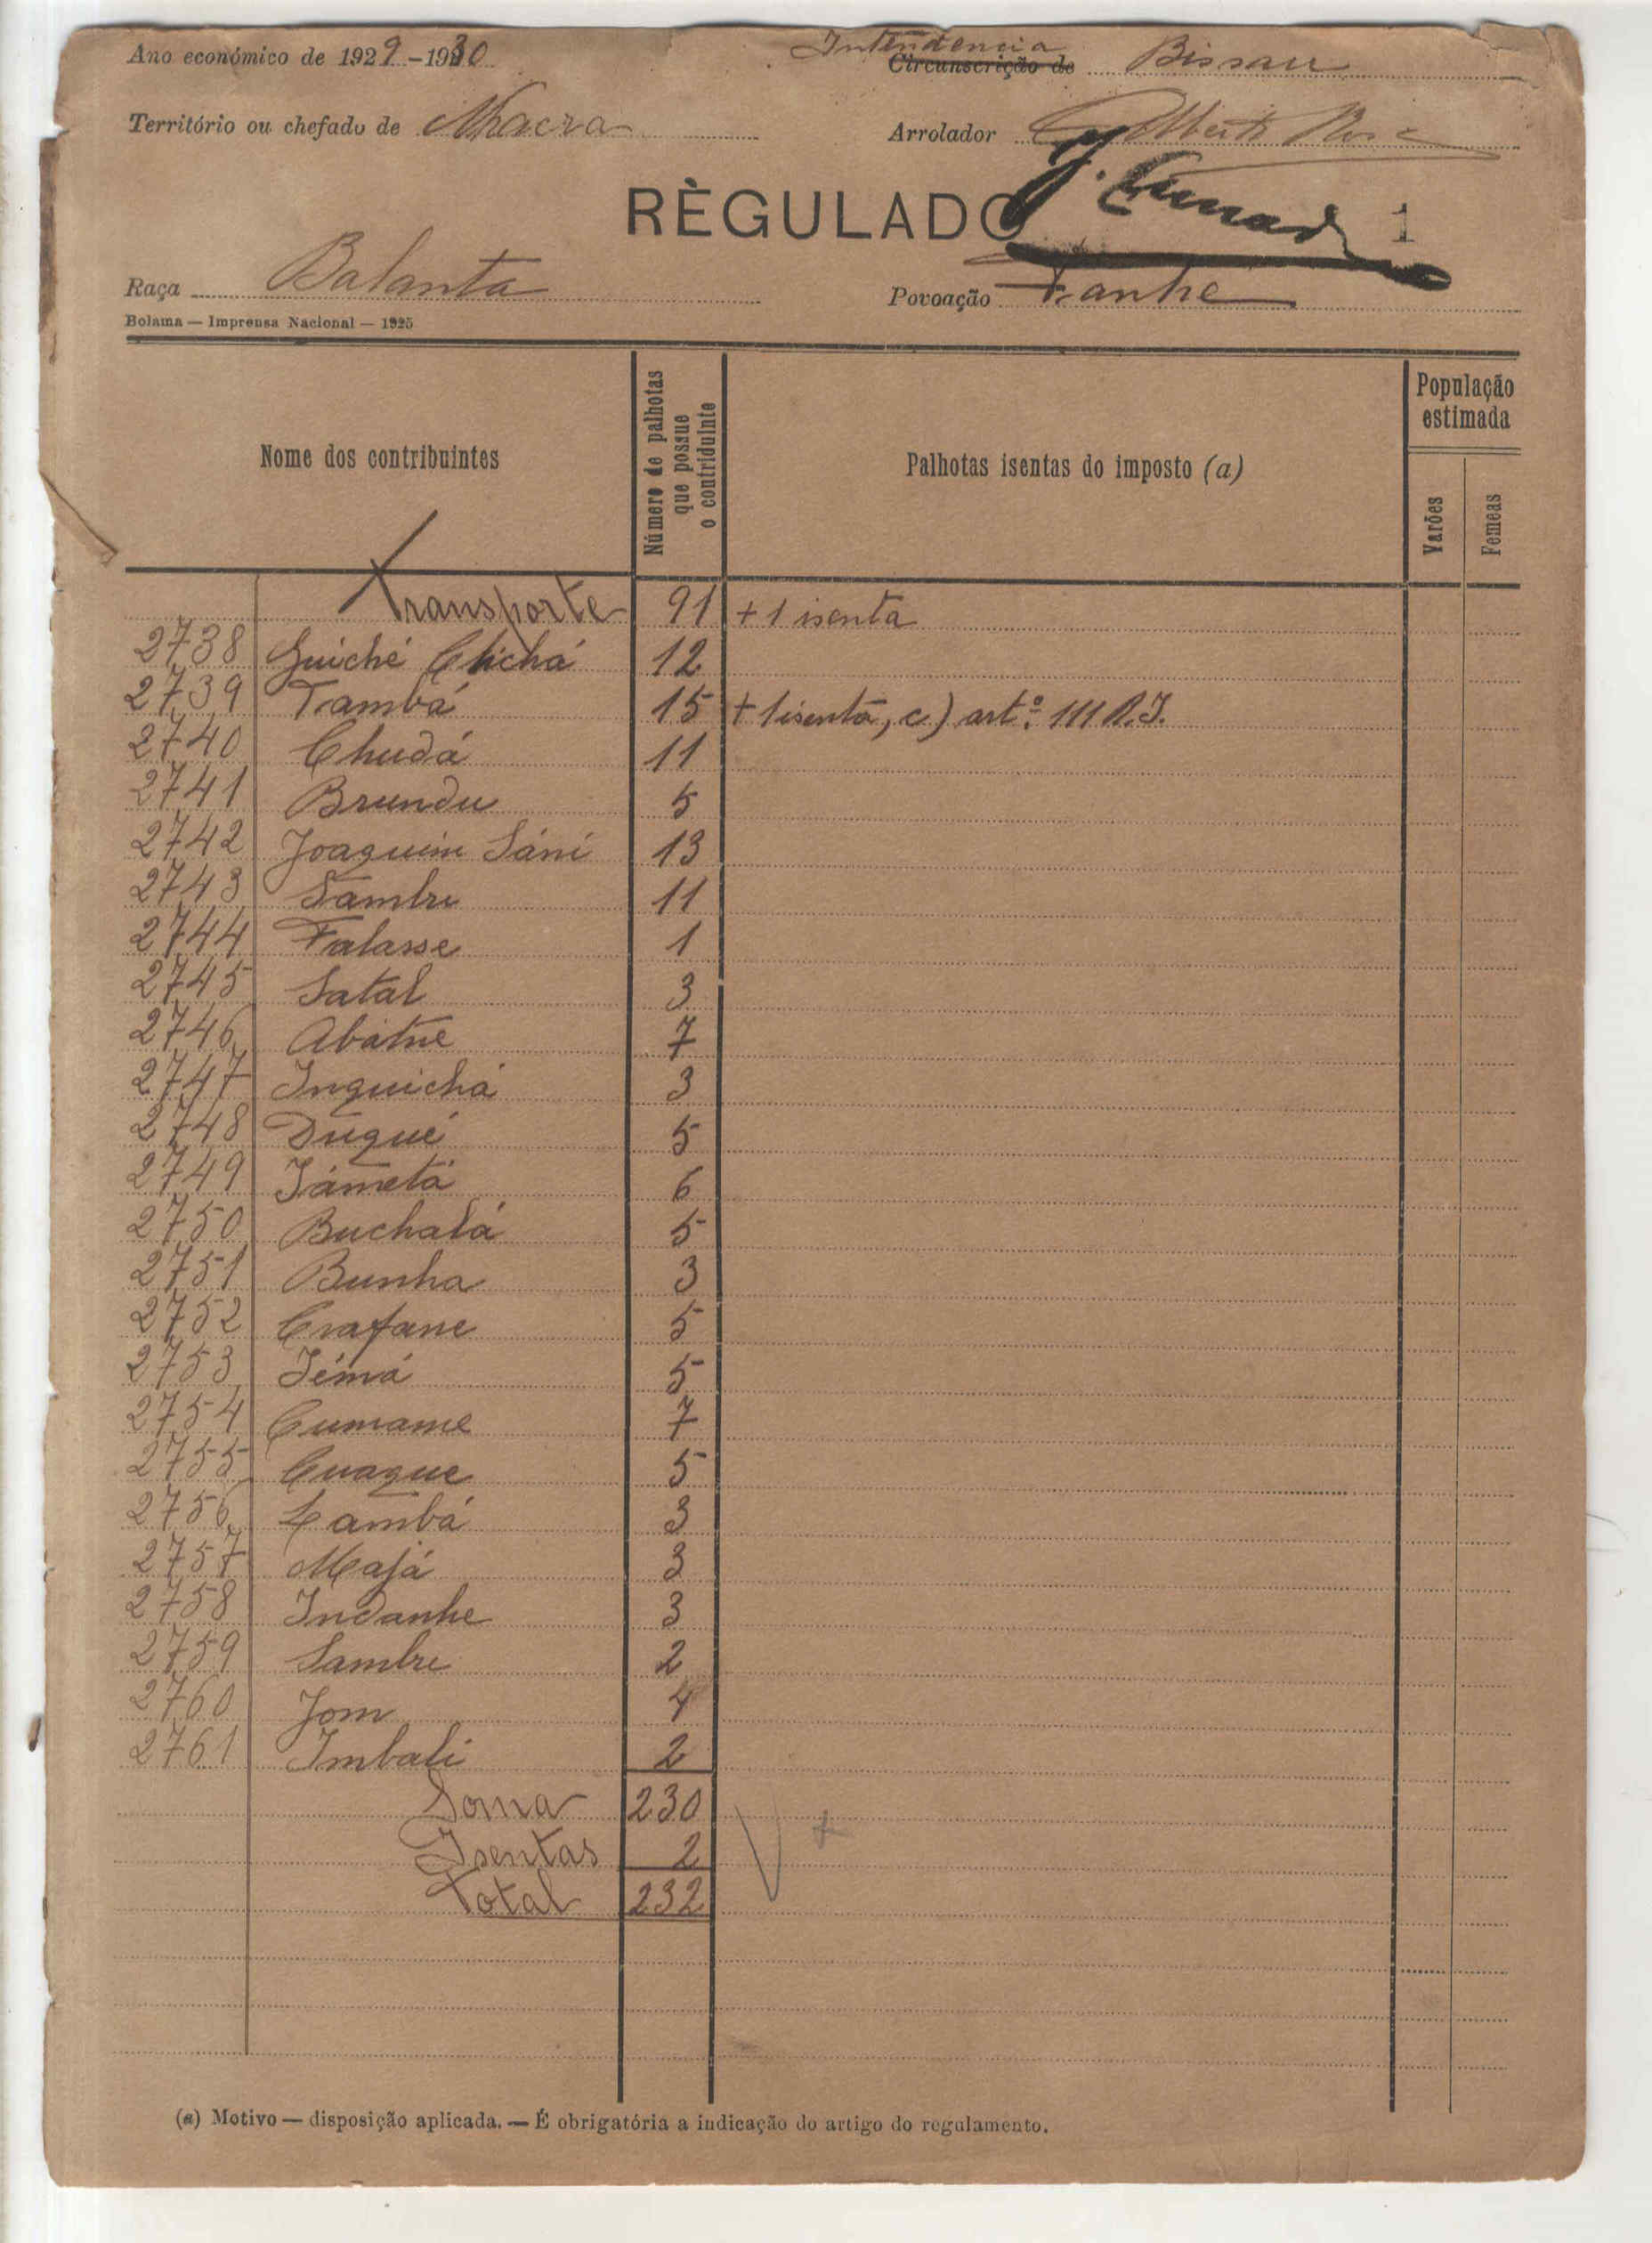 Ano económico de 1929-1930 Intendencia Circunscrição de Bissau
Território ou chefado de Nhacra Arrolador
RÈGULADO 1
Raça Balanta Povoação Fanhe
Bolama — Imprensa Nacional — 1925
Nome dos contribuintes Número de palhotas que possue o contriduinte Palhotas isentas do imposto (a) População estimada Varões Femeas
Transporte 91 + 1 isenta
2738 Guiché Chichá 12
2739 Tambá 15 + 1 isenta, c) artº. 111 R.I.
2740 Chudá 11
2741 Brundu 5
2742 Joaquim Sáni 13
2743 Sambu 11
2744 Falasse 1
2745 Satal 3
2746 Abatne 7
2747 Inquichá 3
2748 Duqué 5
2749 Iámetá 6
2750 Buchalá 5
2751 Bunha 3
2752 Crafane 5
2753 Iémá 5
2754 Cumame 7
2755 Cuaque 5
2756 Lambá 3
2757 Majá 3
2758 Indanhe 3
2759 Sambu 2
2760 Jom 4
2761 Imbali 2
Soma 230
Isentas 2
Total 232
(a) Motivo — disposição aplicada. — É obrigatória a indicação do artigo do regulamento.